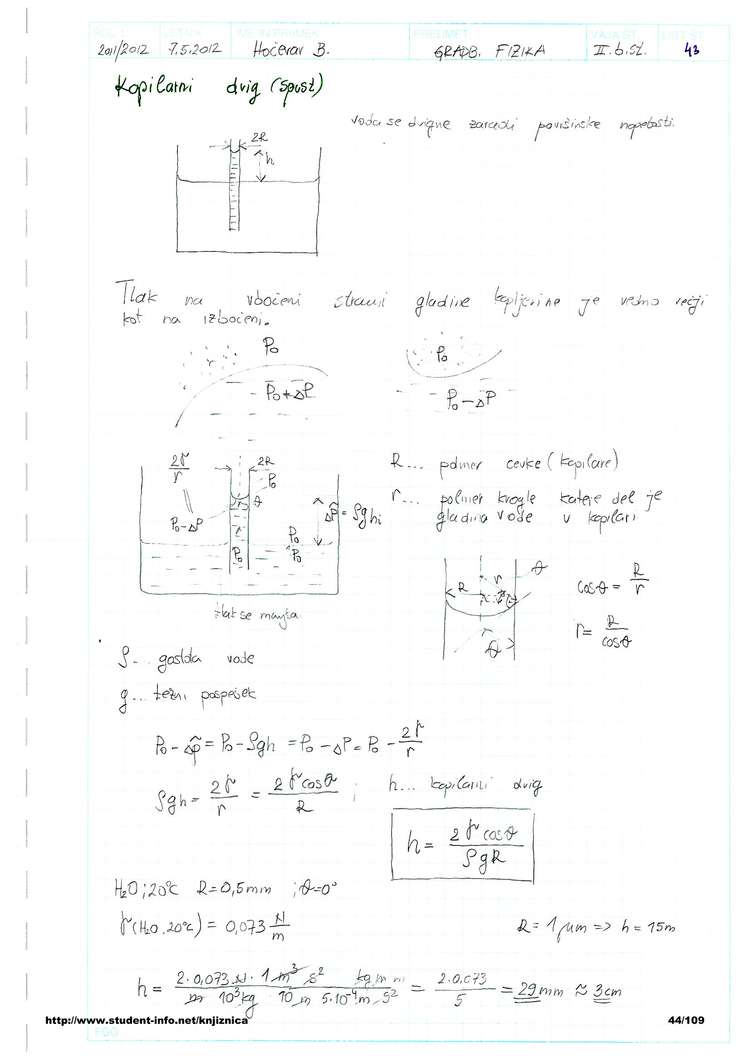 2011/2012 7.5.2012 Hočevar B. GRADB. FIZIKA II.b.st. 43
Kapilarni dvig (spust)
Voda se dvigne zaradi površinske napetosti.
2R
h
Tlak na vbočeni strani gladine kapljevine je vedno večji
kot na izbočeni.
P₀
r
P₀+ΔP
P₀
P₀-ΔP
2γ/r
2R
P₀
θ
P₀-ΔP
Δp̃ = ρgh
P₀
P₀
P₀
tlak se manjša
R... polmer cevke (kapilare)
r... polmer krogle katere del je
gladina vode v kapilari
R r θ
r
θ
cosθ = R/r
r = R/cosθ
ρ... gostota vode
g... težni pospešek
P₀ - Δp̃ = P₀ - ρgh = P₀ - ΔP = P₀ - 2γ/r
ρgh = 2γ/r = 2γcosθ/R ; h... kapilarni dvig
h = 2γcosθ/ρgR
H₂O ; 20°C R=0,5mm ; θ=0°
γ(H₂O, 20°C) = 0,073 N/m
R = 1 μm => h = 15m
h = 2·0,073 N·1 m³ s² kg m m / m 10³ kg 10 m 5·10⁻⁴ m s² = 2·0,073/5 = 29 mm ≈ 3 cm
http://www.student-info.net/knjiznica 44/109